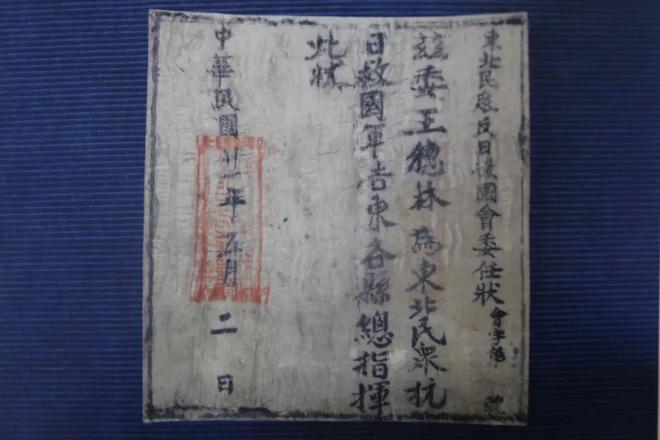 東北民眾反日救國會委任狀 會字第 號
茲委王德林為東北民衆抗
日救國軍吉東各縣總指揮
此狀
中華民國廿一年五月二日